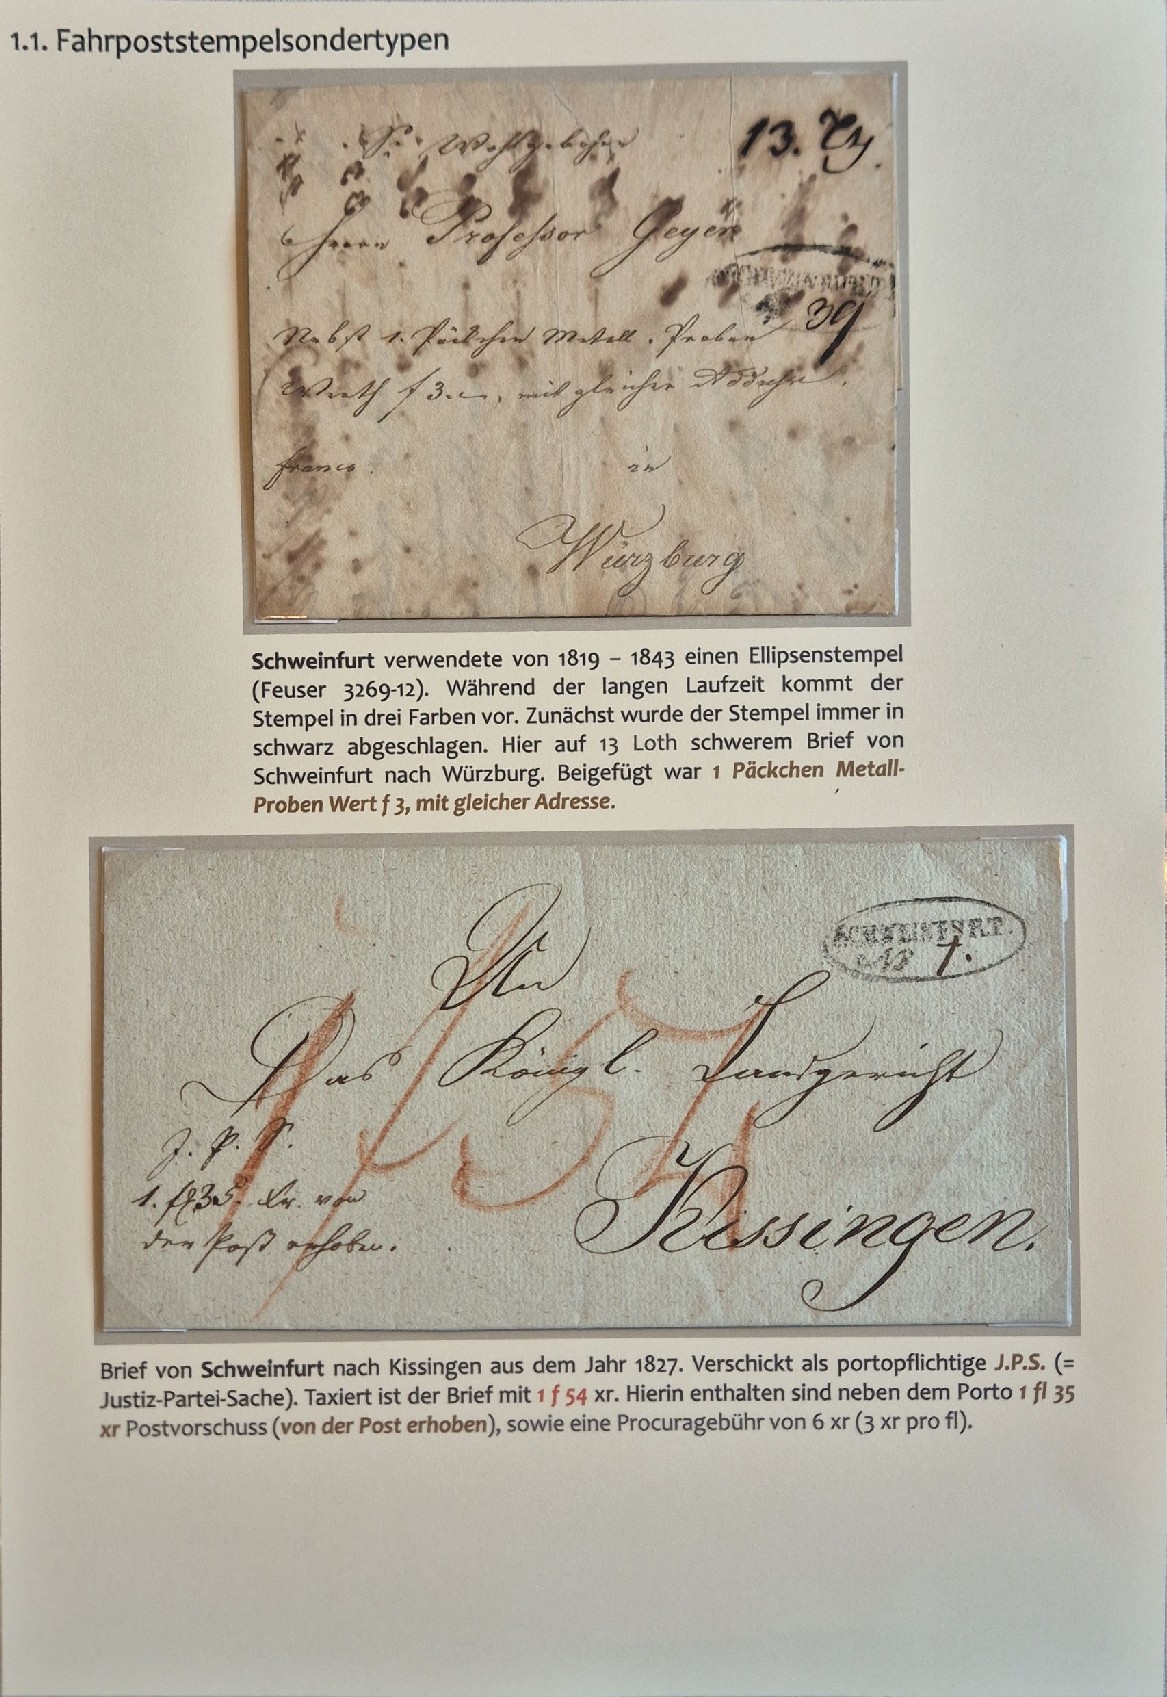 1.1. Fahrpoststempelsondertypen
Sr. Wohlgebohrn
13.
Herrn Professor Geyer
39
Nebst 1. Päckchen Metall. Proben
Werth f 3. mit gleicher Addresse.
franco. in
Würzburg
Schweinfurt verwendete von 1819 – 1843 einen Ellipsenstempel
(Feuser 3269-12). Während der langen Laufzeit kommt der
Stempel in drei Farben vor. Zunächst wurde der Stempel immer in
schwarz abgeschlagen. Hier auf 13 Loth schwerem Brief von
Schweinfurt nach Würzburg. Beigefügt war 1 Päckchen Metall-
Proben Wert f 3, mit gleicher Adresse.
An
SCHWEINFURT.
No 7.
Das Königl. Landgericht
J. P. S.
1 f 54
1. fl 35. Kr. von
der Post erhoben.
Kissingen.
Brief von Schweinfurt nach Kissingen aus dem Jahr 1827. Verschickt als portopflichtige J.P.S. (=
Justiz-Partei-Sache). Taxiert ist der Brief mit 1 f 54 xr. Hierin enthalten sind neben dem Porto 1 fl 35
xr Postvorschuss (von der Post erhoben), sowie eine Procuragebühr von 6 xr (3 xr pro fl).